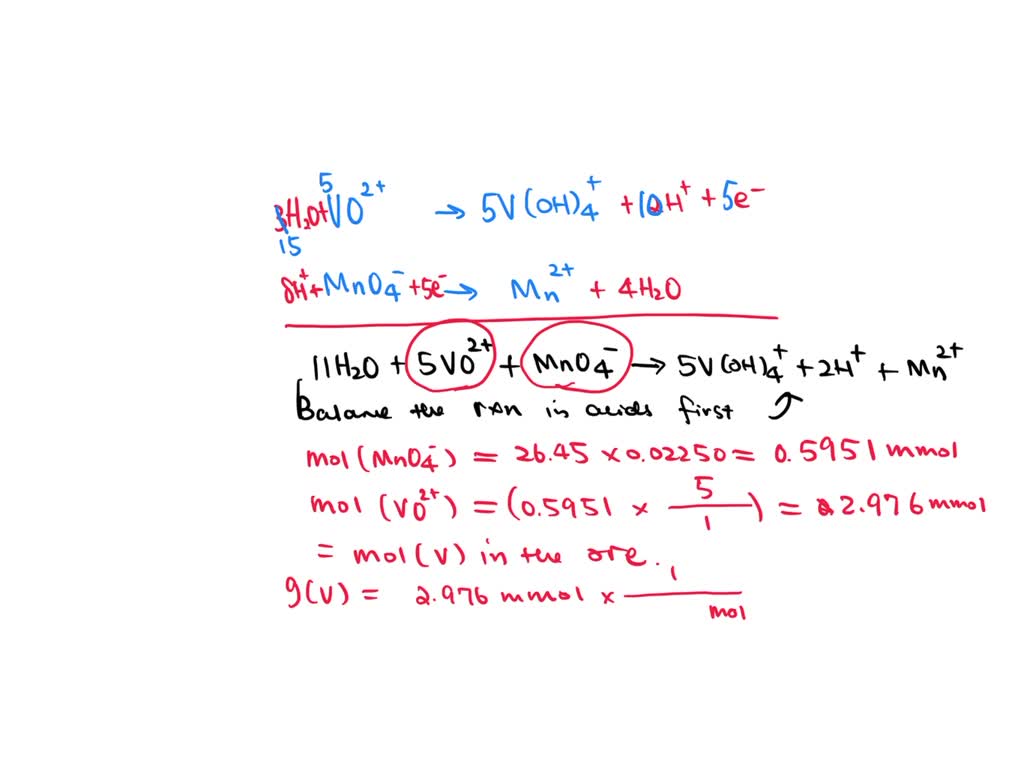 5
3H₂O+VO²⁺ → 5V(OH)₄⁺ + 10H⁺ + 5e⁻
15
8H⁺+MnO₄⁻+5e⁻ → Mn²⁺ + 4H₂O
11H₂O + 5VO²⁺ + MnO₄⁻ → 5V(OH)₄⁺ + 2H⁺ + Mn²⁺
Balance the rxn in acids first
mol(MnO₄⁻) = 26.45 × 0.02250 = 0.5951 mmol
mol (VO²⁺) = (0.5951 × 5/1) = 2.976 mmol
= mol(V) in the ore.
g(V) = 2.976 mmol × 1/mol